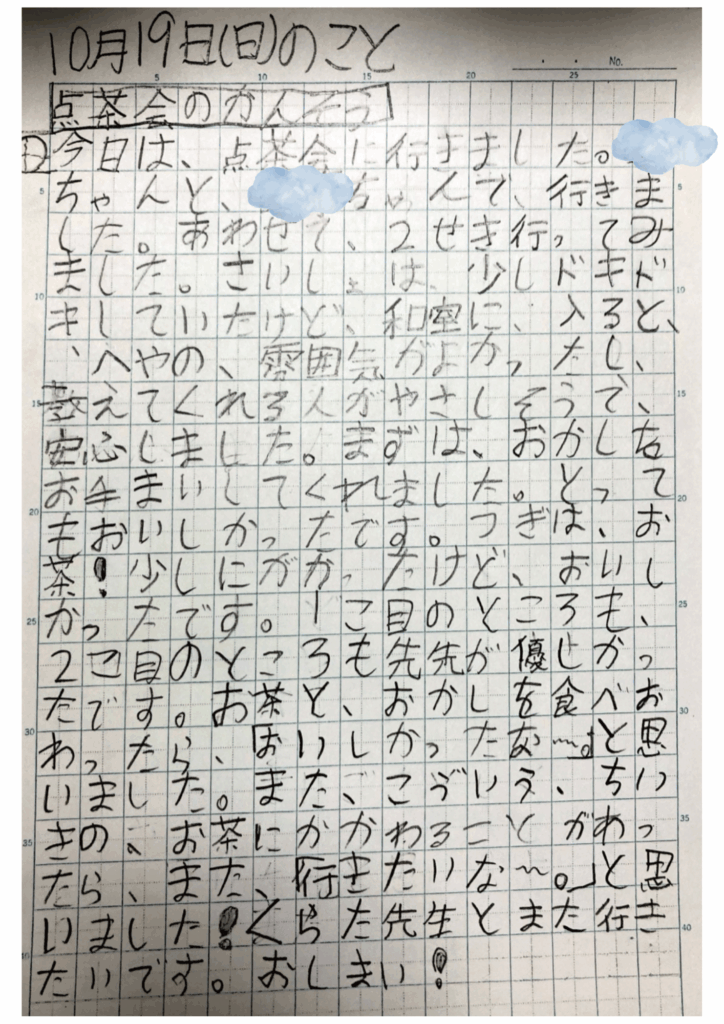 10月19日(日)のこと
点茶会のかんそう
今日は、点茶会に行きました。
ちゃんと、ちゃんで、行きま
した。あわせて、2せき行ってみ
ました。さいしょは、少しドキド
キしていたけど、和室に、入ると、
、へやの、雰囲気がよかったし、
教えてくれる人がやさしそうで、
安心しました。まずは、おかしを
お手まいしてくれました。とって
もおいしかったです。つぎは、お
茶!少しにがかったけど、おいし
かったです。1こ目のところも、
2こ目のところも先先が優しかっ
たです。お茶と、おかしを食べお
わったら、「おいしかったな〜。」と思
いました。また、こういう、ちい
きの、お茶にかかわることがわっ
たら、また、「行きたいな〜。」と思
いました!くぢた先生とまた行き
たいです。おしまい!